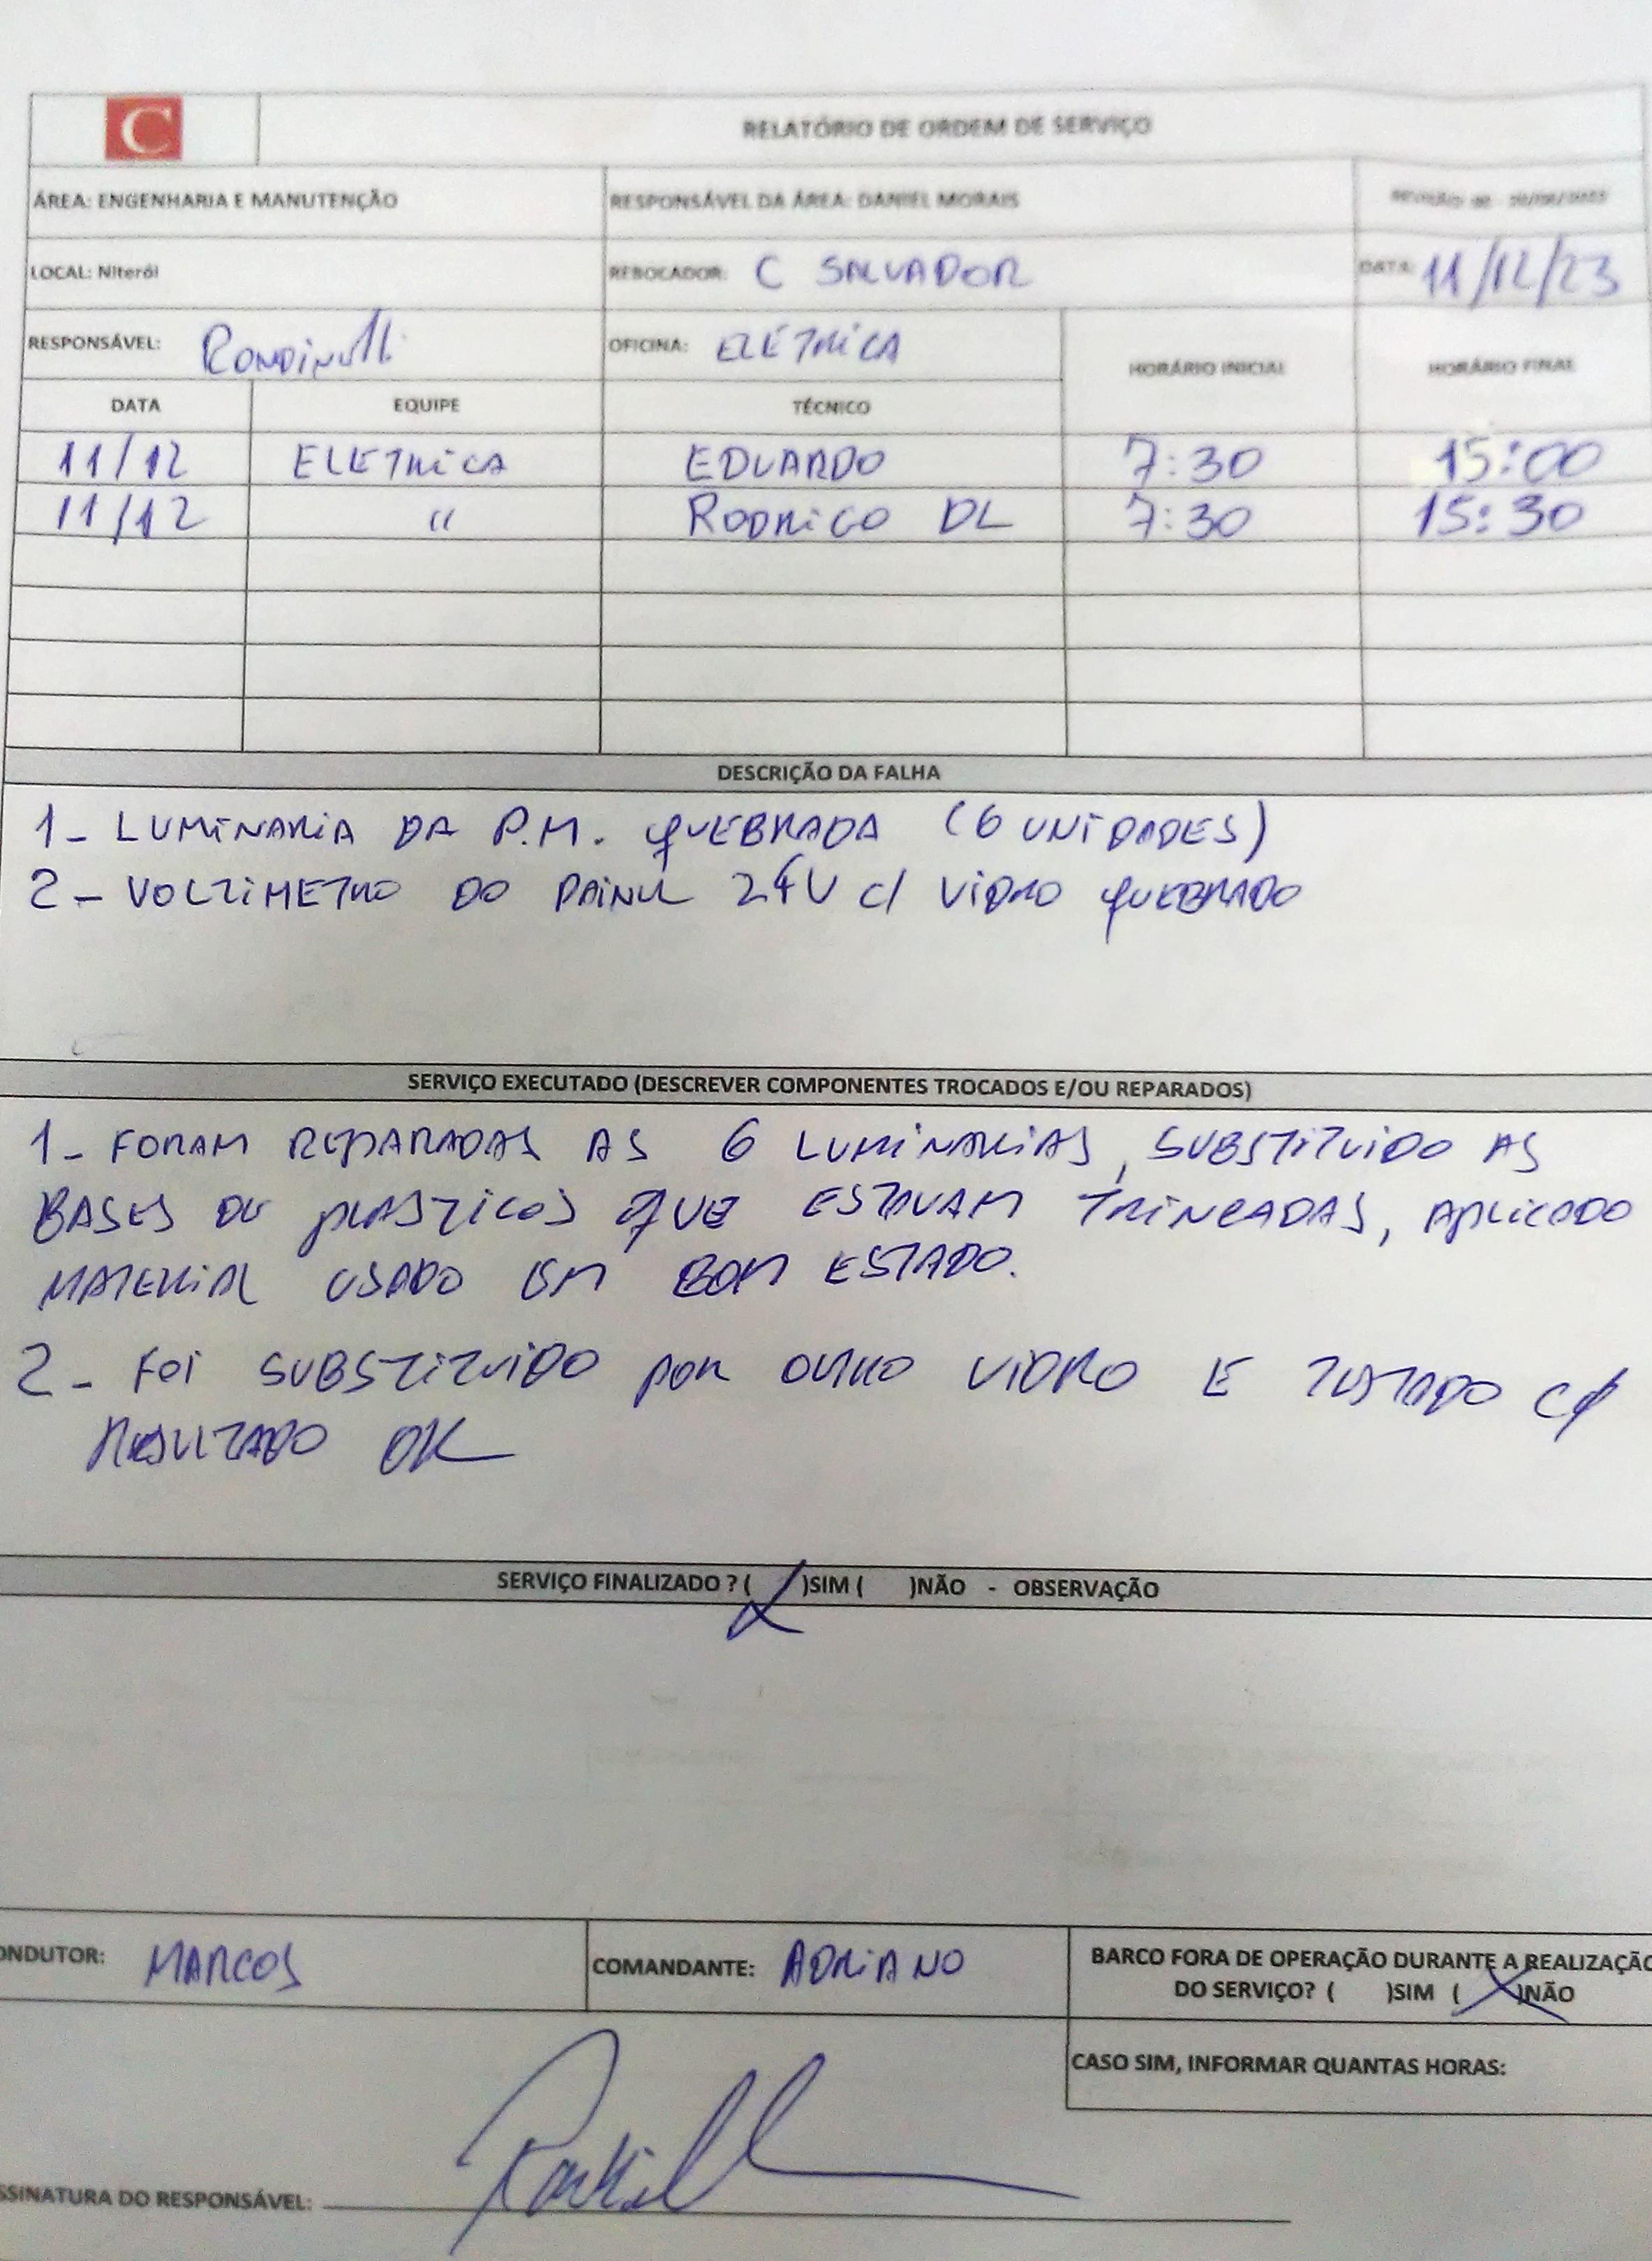 C
RELATÓRIO DE ORDEM DE SERVIÇO
ÁREA: ENGENHARIA E MANUTENÇÃO RESPONSÁVEL DA ÁREA: DANIEL MORAIS REVISÃO
LOCAL: Niterói REBOCADOR: C SALVADOR DATA: 11/12/23
RESPONSÁVEL: OFICINA: ELÉTRICA HORÁRIO INICIAL HORÁRIO FINAL
DATA EQUIPE TÉCNICO
11/12 ELETRICA EDUARDO 7:30 15:00
11/12 " RODRIGO DL 7:30 15:30
DESCRIÇÃO DA FALHA
1- LUMINARIA DA P.M. QUEBRADA (6 UNIDADES)
2- VOLTIMETRO DO PAINEL 24V c/ VIDRO QUEBRADO
SERVIÇO EXECUTADO (DESCREVER COMPONENTES TROCADOS E/OU REPARADOS)
1- FORAM REPARADAS AS 6 LUMINARIAS, SUBSTITUIDO AS
BASES DE PLASTICOS QUE ESTAVAM TRINCADAS, APLICADO
MATERIAL USADO EM BOM ESTADO.
2- FOI SUBSTITUIDO POR OUTRO VIDRO E TESTADO c/
RESULTADO OK
SERVIÇO FINALIZADO ? ( X )SIM ( )NÃO - OBSERVAÇÃO
ONDUTOR: MARCOS COMANDANTE: ADRIANO BARCO FORA DE OPERAÇÃO DURANTE A REALIZAÇÃO
DO SERVIÇO? ( )SIM ( X )NÃO
CASO SIM, INFORMAR QUANTAS HORAS:
SSINATURA DO RESPONSÁVEL: